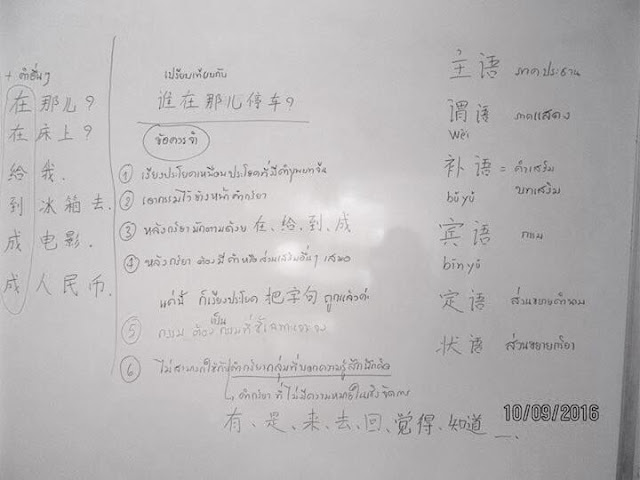 + คำอื่นๆ
在 那儿?
在 床上?
给 我.
到 冰箱 去.
成 电影.
成 人民币.
เปรียบเทียบกับ
谁在那儿停车?
ข้อควรจำ
① เรียงประโยคเหมือนประโยคที่มีคำบุพบทจีน
② เอากรรมไว้ข้างหน้าคำกริยา
③ หลังกริยามักตามด้วย 在、给、到、成
④ หลังกริยา ต้องมีคำหรือส่วนเสริมอื่นๆ เสมอ
แค่นี้ ก็เรียงประโยค 把字句 ถูกแล้วค่ะ
⑤ กรรม ต้องเป็นกรรมที่ชี้เฉพาะเจาะจง
⑥ ไม่สามารถใช้กับคำกริยากลุ่มที่บอกความรู้สึกนึกคิด
คำกริยา ที่ไม่มีความหมายในเชิงจัดการ
有、是、来、去、回、觉得、知道 __.
主语 ภาคประธาน
谓语 ภาคแสดง
Wèi
补语 = คำเสริม
bǔ yǔ บทเสริม
宾语 กรรม
bīn yǔ
定语 ส่วนขยายคำนาม
状语 ส่วนขยายกริยา
10/09/2016